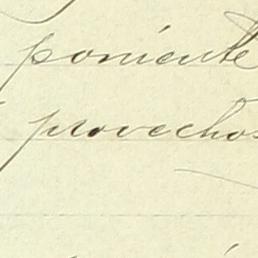 poniente
provechos